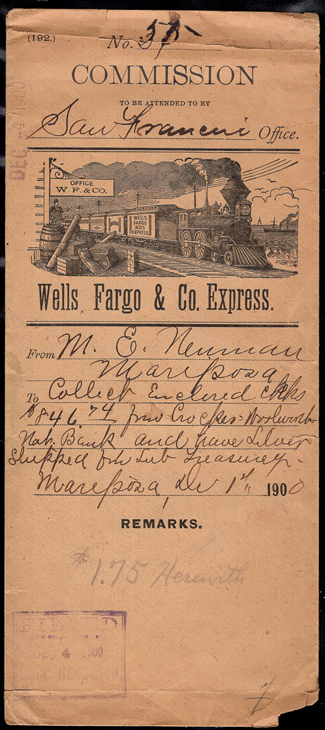 (192.)
No. 57
COMMISSION
TO BE ATTENDED TO BY
San Francisco Office.
DEC -4 1900
OFFICE
W. F. & CO.
WELLS
FARGO
& CO'S
EXPRESS
Wells, Fargo & Co. Express.
From M. E. Neuman
Mariposa
To Collect Enclosed Cks
$846.74 from Crocker-Woolworth
Nat. Bank and have Silver
Shipped from Sub Treasury.
Mariposa, De 1st 1900
REMARKS.
$1.75 Herewith
4 1900